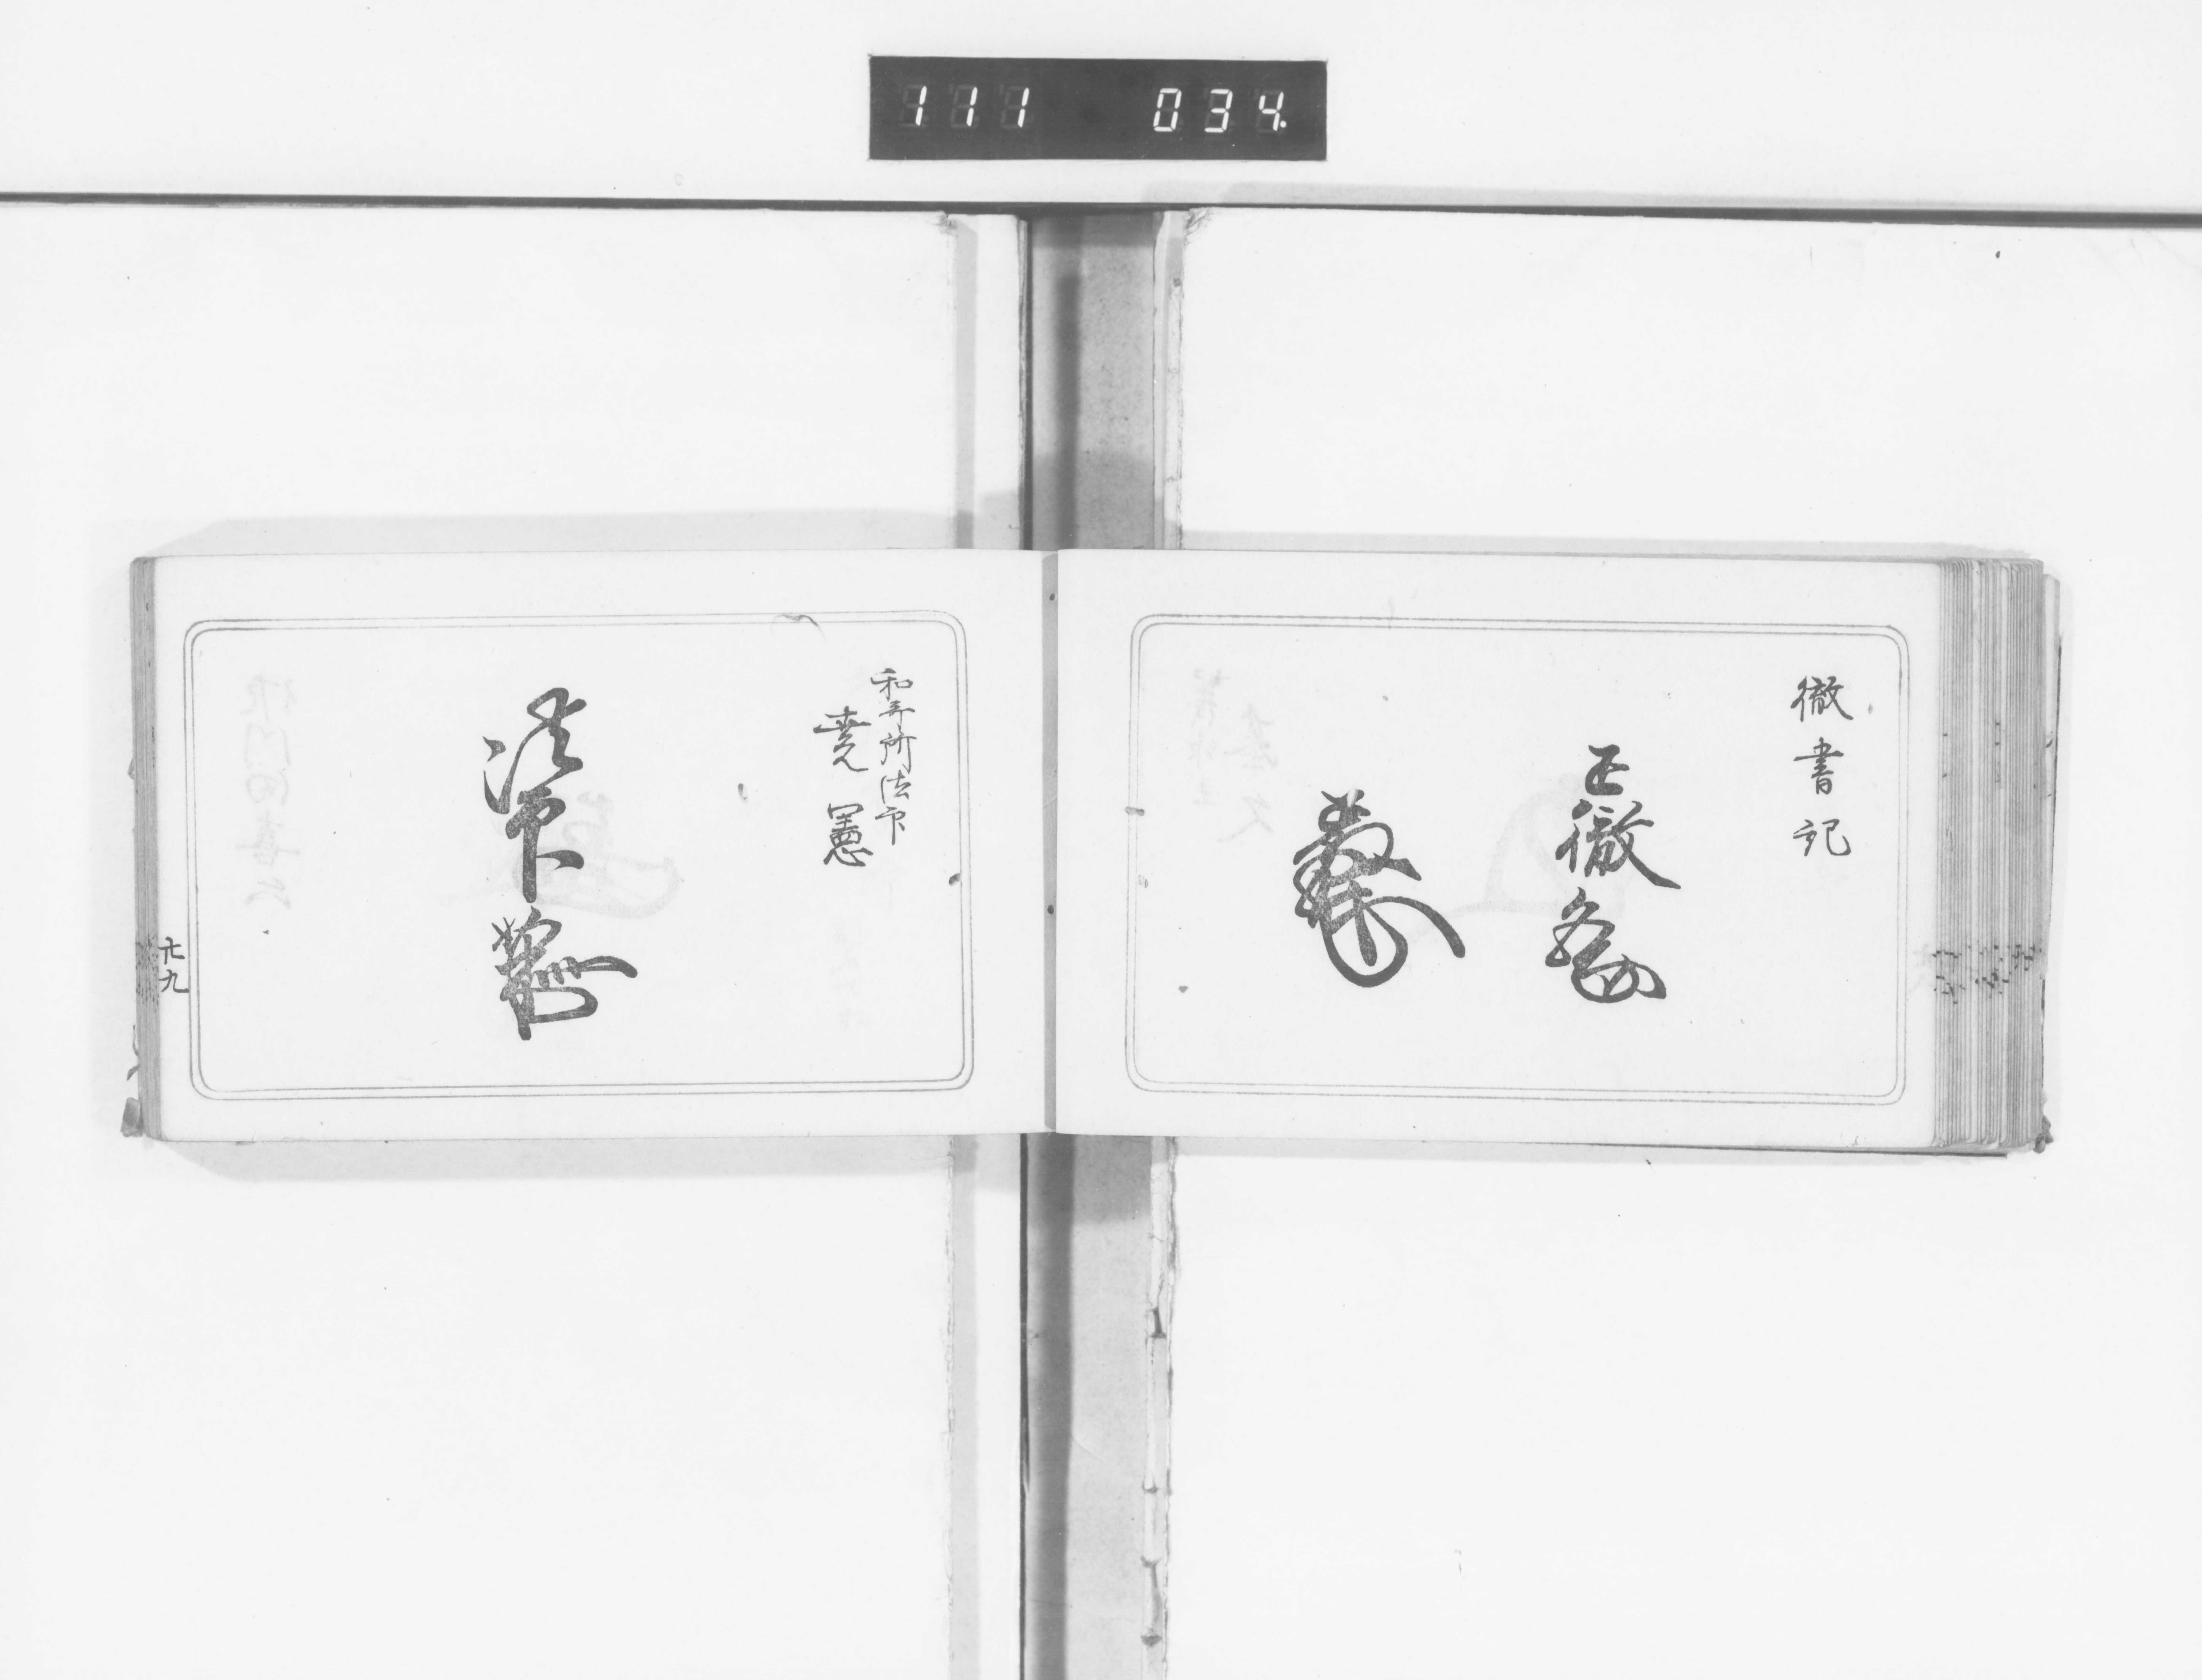 111 034
徹書記
正徹
和哥所法印
堯憲
法印
卅九